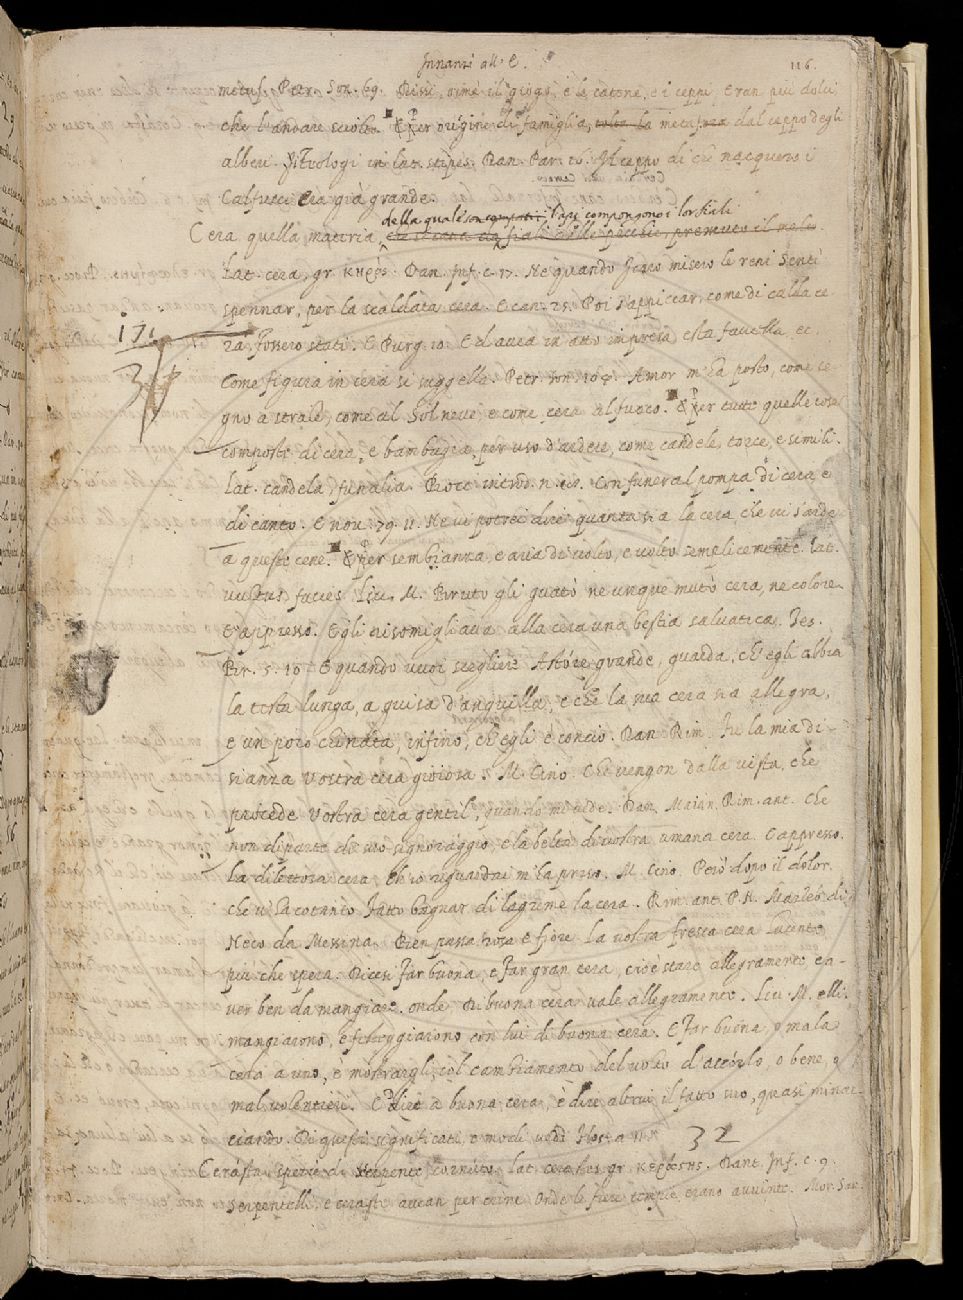 Innanzi all. E.
116.
metus. Petr. Son. 69. Dissi, oimè il giogo, e le catene, e i ceppi, Eran più dolci,
che l'andare sciolto. Per origine di famiglia, tolta la metafora dal ceppo degli
alberi. lat. stipes. Dan. Par. 16. Il ceppo di che nacquero i
Calfucci Era già grande.
della quale l'api compongono i lor fiali
Cera quella materia, premuto il mele.
Lat. cera, gr. κηρός. Dan. Inf. c. 17. Ne quando Icaro misero le reni Sentì
spennar, per la scaldata cera. E can. 25. Poi s'appiccar, come di calda ce
ra Fossero stati. E Purg. 10. Ed avea in atto impressa esta favella ec.
171
Come figura in cera si suggella. Petr. son. 104. Amor m'ha posto, come se
3
gno a strale, come al Sol neve, e come cera al fuoco. Per tutte quelle cose
composte di cera, e bambagia, per uso d'ardere, come candele, torce, e simili.
lat. candela, funalia. Bocc. introd. n. Con funeral pompa di cera, e
di canto. E nov. 79. 11. Ne vi potrei dire quanta sia la cera, che vi s'arde
a queste cene. Per sembianza, e aria di volto, e volto semplicemente. lat.
vultus, facies. Liv. M. Bruto gli guatò ne unque mutò cera, ne colore.
E appresso. Egli risomigliava alla cera una bestia salvatica. Tes.
Br. 5. 10. E quando vuoi scegliere Astóre grande, guarda, ch'egli abbia
la testa lunga, a guisa d'anguilla, e che la sua cera sia allegra,
e un poco chinata, infino, ch'egli è concio. Dan. Rim. Fu la mia di
sianza Vostra cera gioiosa. M. Cino. Che vengon dalla vista, che
procede Vostra cera gentil, quando mi vede. Dan. Maian. Rim. ant. Che
non diparte da suo signoraggio, e la beltà di vostra umana cera. E appresso.
La dilettosa cera, Ch'io riguardai m'ha preso. M. Cino. Però dopo il dolor.
che v'ha cotanto Fatto bagnar di lagrime la cera. Rim. ant. P. N. Mazzeo di
Ricco da Messina. Ben passa rosa e fiore La vostra fresca cera Lucente
più che spera. Dicesi Far buona, e far gran cera, cioè stare allegramente e a-
ver ben da mangiare. onde Di buona cera vale allegramente. Liv. M. elli
mangiarono, e festeggiarono con lui di buona cera. E Far buona, o mala
cera a uno, è mostrargli, col cambiamento del volto d'accórlo, o bene, o
mal volentieri. E Dire a buona cera, è dire altrui il fatto suo, quasi minac
ciando. Di questi significati, e modi vedi Flos. a 117.
32
Cerásta, spezie di serpente cornuto. lat. cerastes gr. κεράστης. Dant. Inf. c. 9.
Serpentelli, e ceraste avean per crine Onde le fiere tempie erano avvinte. Mor. S. Gr.